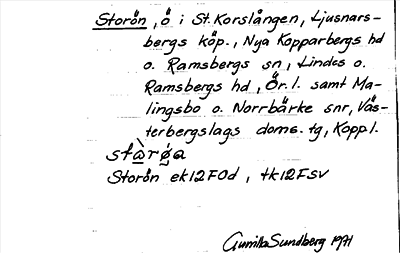 Storön, ö i St. Korslången, Ljusnars-
bergs köp., Nya Kopparbergs hd
o. Ramsbergs sn, Lindes o.
Ramsbergs hd, Ör. l. samt Ma-
lingsbo o. Norrbärke snr, Väs-
terbergslags doms. tg, Kopp. l.
stòrø̨a
Storön ek12F0d, tk12Fsv
Gunilla Sundberg 1971